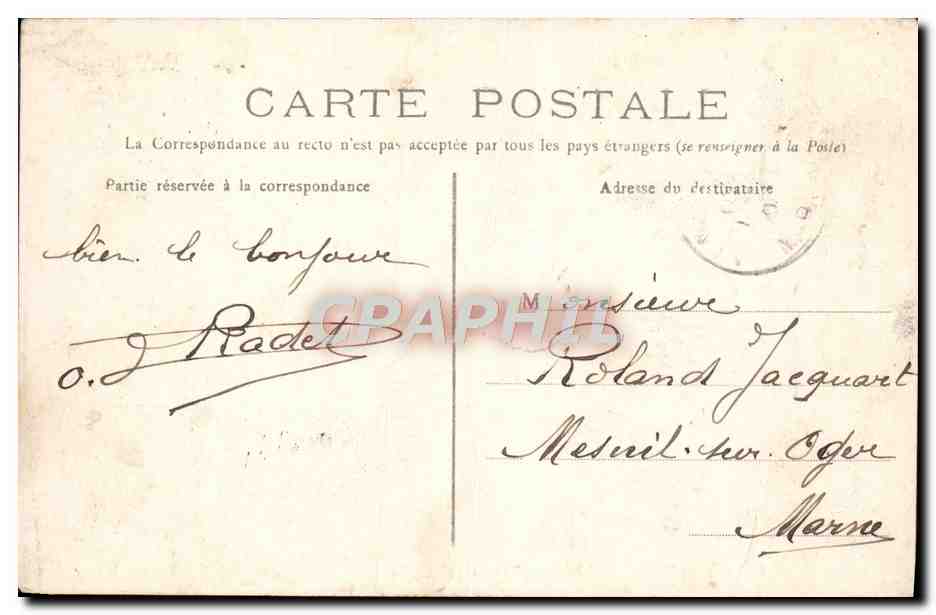 CARTE POSTALE
La Correspondance au recto n'est pas acceptée par tous les pays étrangers (se renseigner à la Poste)
Partie réservée à la correspondance
Adresse du destinataire
bien le bonjour
Radet
CPAPHIL
Monsieur
Roland Jacquart
Mesnil-sur-Oger
Marne